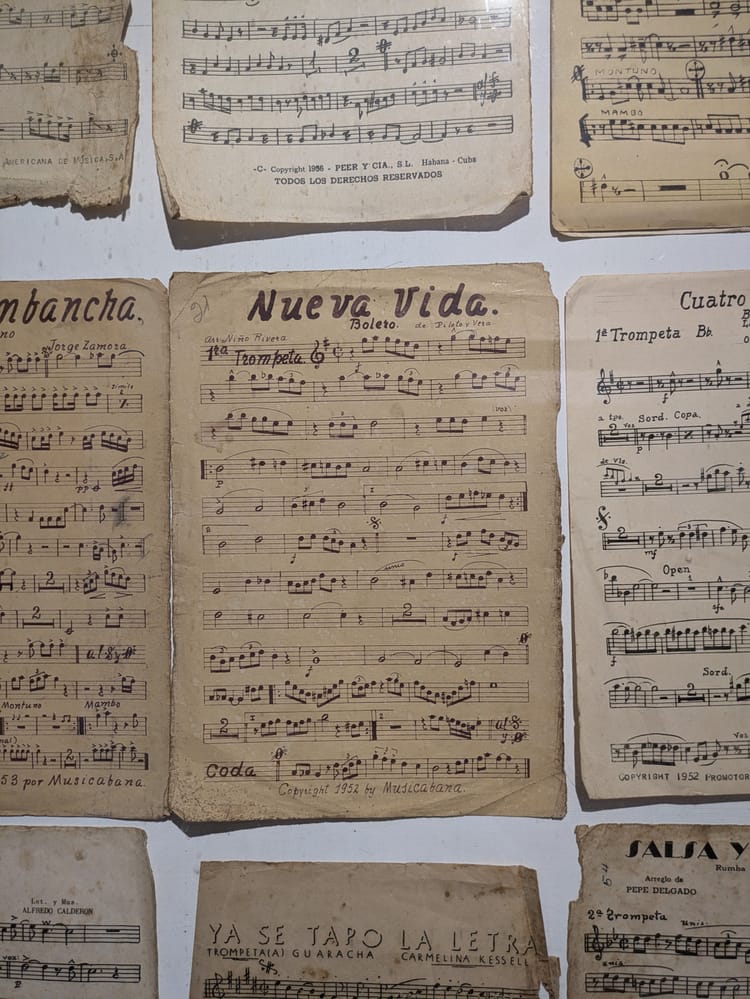 AMERICANA DE MUSICA, S.A
2
-C- Copyright 1956 - PEER Y CIA., S.L. Habana - Cuba
TODOS LOS DERECHOS RESERVADOS
MONTUNO
MAMBO
mbancha.
no
Jorge Zamora
Simile
ff
pp
2
2
al
Montuno
Mambo
2
53 por Musicabana.
21
Nueva Vida.
Bolero.
de Piloto y Vera
Arr. Niño Rivera
1ra Trompeta
3
voz
P
1
2
f
f
unis
2
f
2
1
2
al
y
Coda
Copyright 1952 by Musicabana.
Cuatro
1ª Trompeta Bb.
f
a tpo.
Sord. Copa.
2
voz
P
de Vls.
2
2
mf
3
Open
sfz
f
Sord.
2
voz
COPYRIGHT 1952 PROMOTOR
Let. y Mus.
ALFREDO CALDERON
voz
P
YA SE TAPO LA LETRA
TROMPETA(A) GUARACHA CARMELINA KESSELL
54
SALSA Y
Rumba
Arreglo de
PEPE DELGADO
2ª trompeta
Unis.
unis